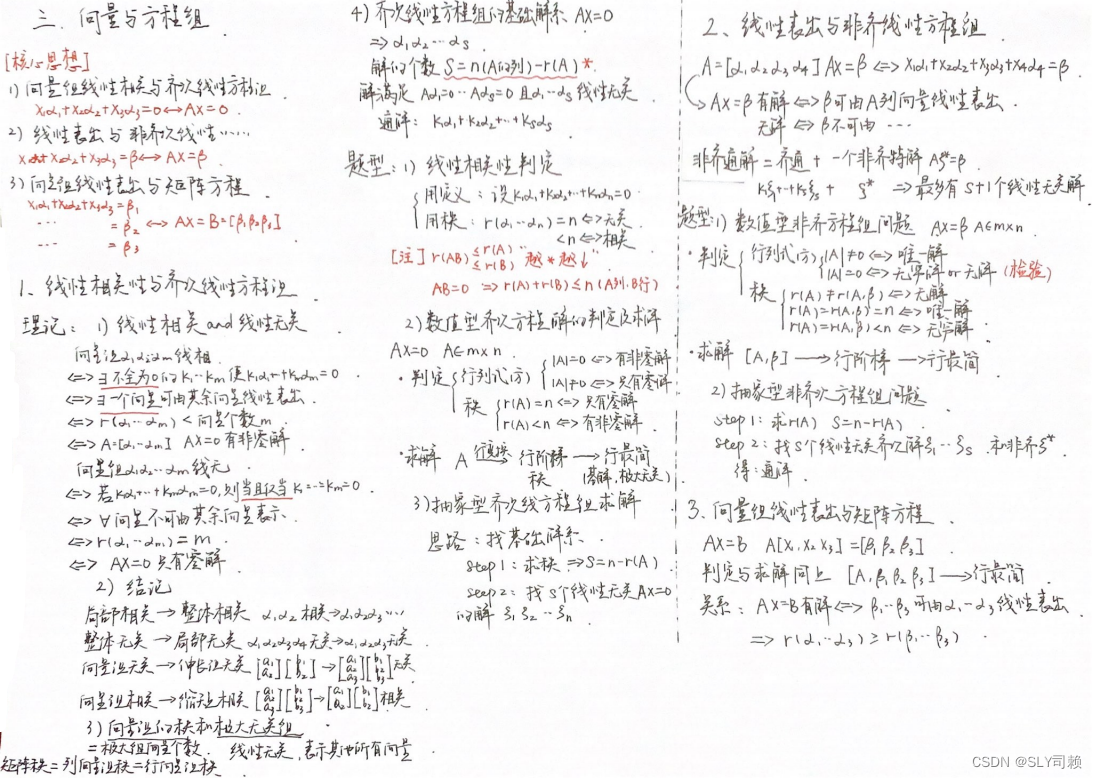 三、向量与方程组
[核心思想]
1) 向量组线性相关与齐次线性方程组
x₁α₁+x₂α₂+x₃α₃=0↔AX=0
2) 线性表出与非齐次线性……
x₂α₂+x₃α₃=β↔AX=β
3) 向量组线性表出与矩阵方程
x₁α₁+x₂α₂+x₃α₃=β₁
… =β₂ ↔ AX=B=[β₁β₂β₃]
… =β₃
1、线性相关性与齐次线性方程组
理论: 1) 线性相关and线性无关
向量组α₁α₂…αm线相
⇔∃不全为0的k₁…km使k₁α₁+…+kmαm=0
⇔∃一个向量可由其余向量线性表出
⇔r(α₁…αm)<向量个数m
⇔A=[α₁…αm] AX=0有非零解
向量组α₁α₂…αm线无
⇔若k₁α₁+…+kmαm=0,则当且仅当k₁=…=km=0
⇔∀向量不可由其余向量表示
⇔r(α₁…αm)=m
⇔ AX=0只有零解
2) 结论
局部相关→整体相关 α₁,α₂相关→α₁α₂α₃…
整体无关→局部无关 α₁α₂α₃α₄无关→α₁α₂α₃无关
向量组无关→伸长组无关 [a₁ a₂][b₁ b₂]→[a₁ a₂ a₃][b₁ b₂ b₃]无关
向量组相关→缩短相关 [a₁ a₂ a₃][b₁ b₂ b₃]→[a₁ a₂][b₁ b₂]相关
3) 向量组的秩和极大无关组
=极大组向量个数. 线性无关,表示其他所有向量
矩阵秩=列向量组秩=行向量组秩
4) 齐次线性方程组的基础解系 AX=0
⇒α₁α₂…αs
解的个数 S=n(A的列)-r(A)*
解满足 Aα₁=0…Aαs=0且α₁…αs线性无关
通解: k₁α₁+k₂α₂+…+ksαs
题型:1) 线性相关性判定
用定义:设k₁α₁+k₂α₂+…+knαn=0
用秩:r(α₁…αn)=n⇔无关
<n⇔相关
[注] r(AB)≤r(A)
≤r(B) 越*越↓
AB=0 ⇒r(A)+r(B)≤n(A列,B行)
2) 数值型齐次方程解的判定及求解
AX=0 A∈m×n
·判定 行列式(方) |A|=0⇔有非零解
|A|≠0⇔只有零解
秩 r(A)=n⇔只有零解
r(A)<n⇔有非零解
·求解 A 行变换→ 行阶梯→行最简
秩 (基解,极大无关)
3) 抽象型齐次线方程组求解
思路:找基础解系
step1:求秩⇒S=n-r(A)
step2:找S个线性无关AX=0
的解 ξ₁ξ₂…ξn
2、线性表出与非齐线性方程组
A=[α₁α₂α₃α₄] AX=β⇔x₁α₁+x₂α₂+x₃α₃+x₄α₄=β
AX=β有解⇔β可由A列向量线性表出
无解⇔β不可由…
非齐通解=齐通+一个非齐特解 Aξ*=β
k₁ξ₁+…+ksξs + ξ* ⇒最多有S+1个线性无关解
题型:1) 数值型非齐方程组问题 AX=β A∈m×n
·判定 行列式(方) |A|≠0⇔唯一解
|A|=0⇔无穷解or无解(检验)
秩 r(A)≠r(A,β)⇔无解
r(A)=r(A,β)=n⇔唯一解
r(A)=r(A,β)<n⇔无穷解
·求解 [A,β]→行阶梯→行最简
2) 抽象型非齐次方程组问题
step1:求r(A) S=n-r(A)
step2:找S个线性无关齐次解ξ₁…ξs 和非齐ξ*
得:通解
3、向量组线性表出与矩阵方程
AX=B A[x₁x₂x₃]=[β₁β₂β₃]
判定与求解同上 [A,β₁β₂β₃]→行最简
关系:AX=B有解⇔β₁…β₃可由α₁…α₃线性表出
⇒r(α₁…α₃)≥r(β₁…β₃)
CSDN @SLY司赖